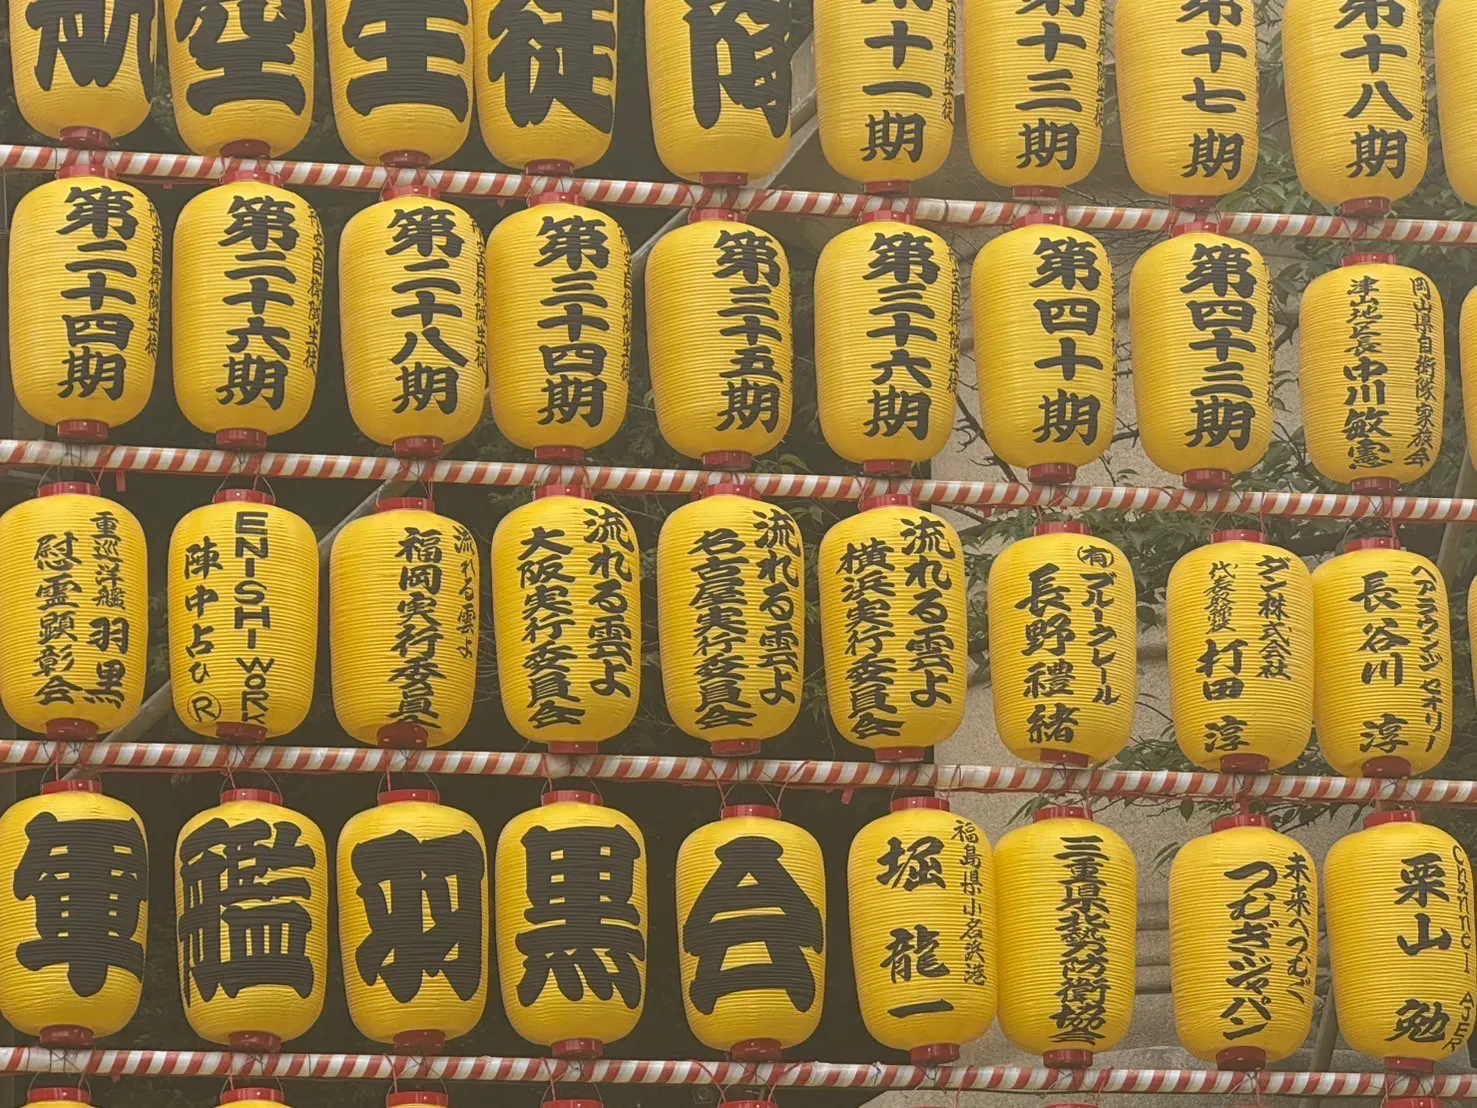 空
生
徒
第十一期
第十三期
第十七期
第十八期
第二十四期
第二十六期
第二十八期
第三十四期
第三十五期
第三十六期
第四十期
第四十三期
岡山県自衛隊家族会
中川敏憲
重巡洋艦 羽黒
慰霊顕彰会
ENISHI WORK
陣中占ひ Ⓡ
流れる雲よ
福岡実行委員会
流れる雲よ
大阪実行委員会
流れる雲よ
名古屋実行委員会
流れる雲よ
横浜実行委員会
㈲ブルークレール
長野禮緒
ダン株式会社
代表取締役 打田 淳
ヘアラウンジ セオリー
長谷川 淳
軍
艦
羽
黒
会
福島県小名浜港
堀 龍一
三重県北勢防衛協
未来へつむご
つむぎジャパン
Channel AJER
栗山 勉